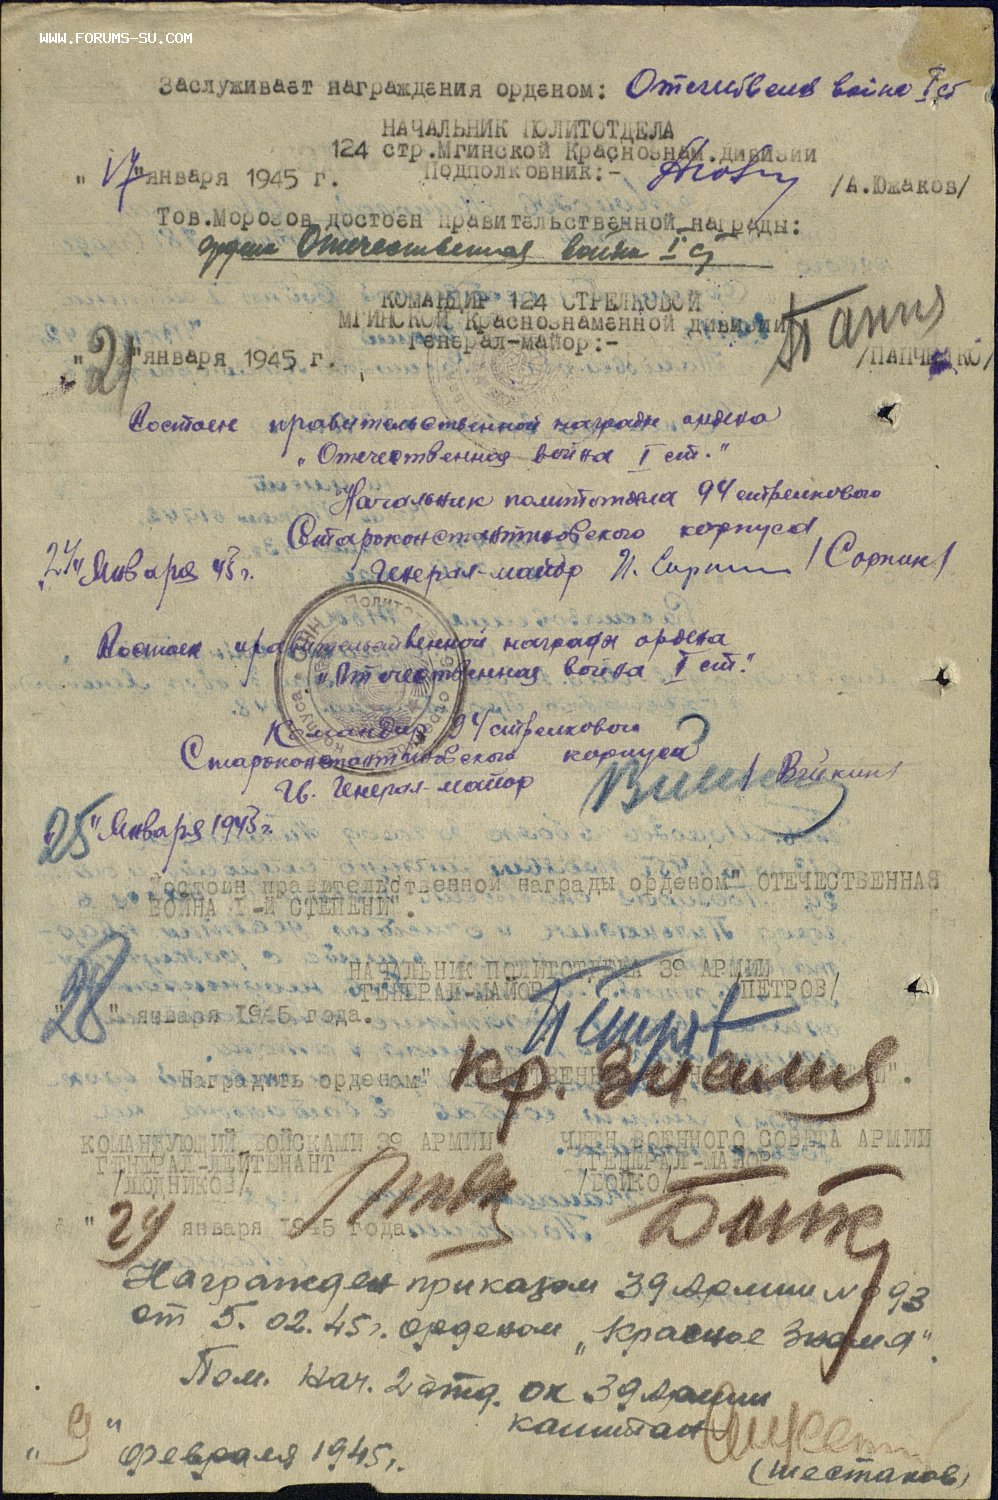 WWW.FORUMS-SU.COM
Заслуживает награждения орденом: Отечествена война I ст
НАЧАЛЬНИК ПОЛИТОТДЕЛА
124 стр.Мгинской Краснознам.дивизии
Подполковник:-
"17" января 1945 г. /А.Южаков/
Тов.Морозов достоен правительственной награды:
орден Отечественная война I ст
КОМАНДИР 124 СТРЕЛКОВОЙ
МГИНСКОЙ Краснознаменной дивизии
Генерал-майор:-
"21" января 1945 г. /ПАПЧЕНКО/
Достоен правительственной награды ордена
"Отечественная война I ст."
Начальник политотдела 94 стрелкового
Староконстантиновского корпуса
"24" Января 45 г. Генерал-майор /Соркин/
Достоен правительственной награды ордена
"Отечественная война I ст."
Командир 94 стрелкового
Староконстантиновского корпуса
Гв. Генерал-майор
"25" Января 1945 г.
Достоин правительственной награды орденом" ОТЕЧЕСТВЕННАЯ
ВОЙНА I-й СТЕПЕНИ".
НАЧАЛЬНИК ПОЛИТОТДЕЛА 39 АРМИИ
ГЕНЕРАЛ-МАЙОР /ПЕТРОВ/
Петров
"28" января 1945 года.
Наградить орденом"
Кр. Знамя
КОМАНДУЮЩИЙ ВОЙСКАМИ 39 АРМИИ
ГЕНЕРАЛ-ЛЕЙТЕНАНТ
/ЛЮДНИКОВ/
ЧЛЕН ВОЕННОГО СОВЕТА АРМИИ
ГЕНЕРАЛ-МАЙОР
/БОЙКО/
"29" января 1945 года
Награжден приказом 39 Армии № 093
от 5.02.45 г. орденом "Красное Знамя".
Пом. Нач. 2 отд. ок 39 Армии
капитан
"9" февраля 1945 г. (Шестаков)